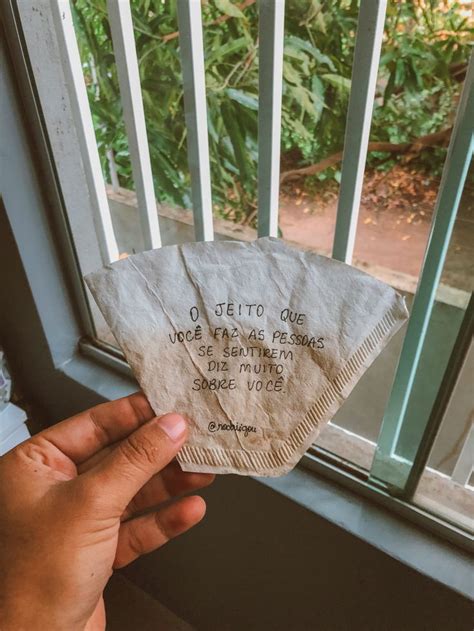 O JEITO QUE
VOCÊ FAZ AS PESSOAS
SE SENTIREM
DIZ MUITO
SOBRE VOCÊ.